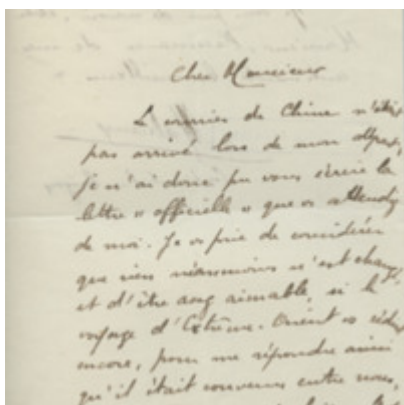 Cher Monsieur
Le courrier de Chine n'était
pas arrivé lors de mon départ,
je n'ai donc pu vous écrire la
lettre « officielle » que vs attendez
de moi. Je vs prie de considérer
que rien néanmoins n'est changé
et d'être assez aimable, si le
voyage d'Extrême-Orient vs séduit
encore, pour me répondre ainsi
qu'il était convenu entre nous,